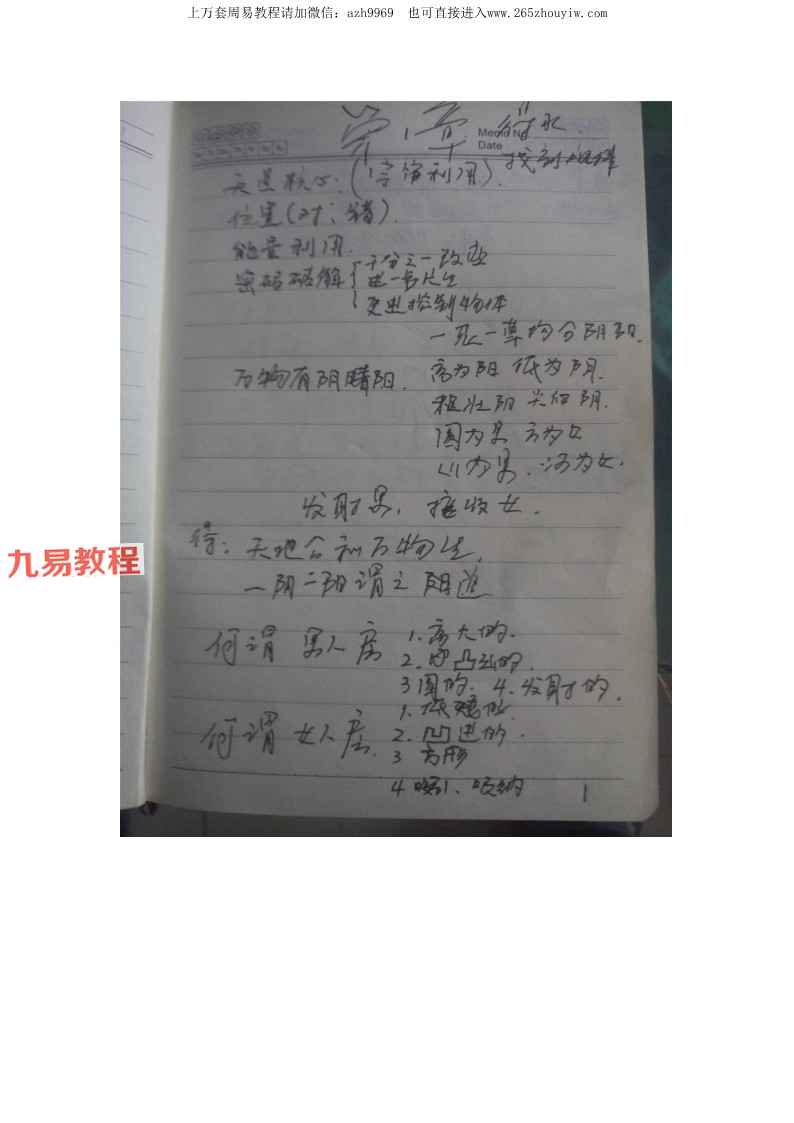 上万套周易教程请加微信：azh9969 也可直接进入www.265zhouyiw.com
第一章
Memo No
Date
位置(对、错).
能量利用.
密码破解
千分之一改变
更进控制物体
万物有阴曙阳.
高为阳 低为阴.
粗壮阳 尖细阴.
圆为男 方为女
山为男.河为女.
发射男，接收女.
九易教程
天地合和万物生,
一阴二阳谓之阴道
何谓 男人房
1.高大的.
2.凸出的.
3圆的. 4.发射的.
何谓 女人房.
1.低矮的.
2.凹进的.
3 方形
4 吸引、吸纳
1